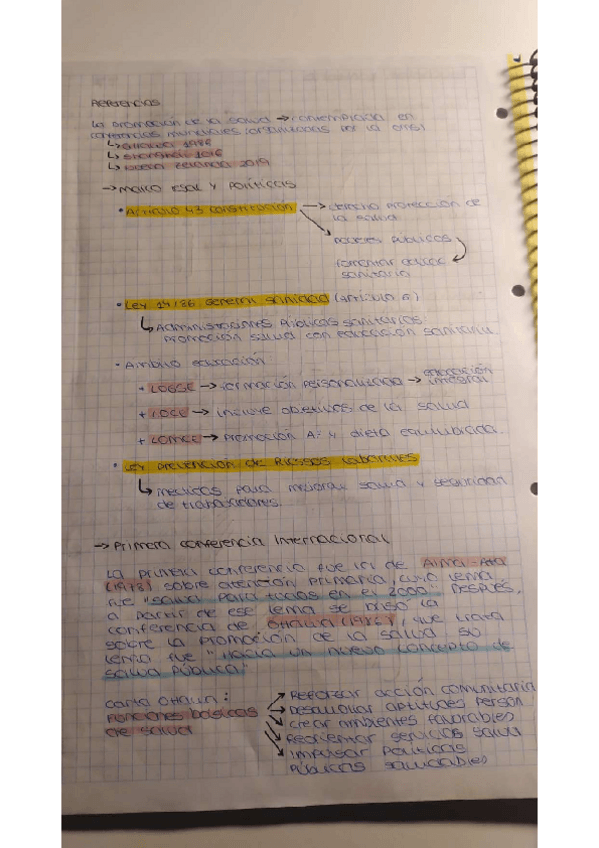 Referencias
La promoción de la salud → contemplada en
conferencias mundiales (organizadas por la OMS)
↳ Ottawa 1986
↳ Shanghai 2016
↳ Nueva Zelanda 2019
→ Marco legal y políticas
• Artículo 43 Constitución → derecho protección de
la salud
→ poderes públicos
fomentar educac
sanitaria
• Ley 14/86 General Sanidad (artículo 6)
↳ Administraciones Públicas sanitarias:
promoción salud con educación sanitaria.
• Ámbito educación:
+ LOGSE → formación personalizada → educación integral
+ LOCE → incluye objetivos de la salud
+ LOMCE → promoción A.F y dieta equilibrada.
• Ley prevención de Riesgos Laborales
↳ medidas para mejorar salud y seguridad
de trabajadores.
→ Primera conferencia Internacional
La primera conferencia fue la de Alma-Ata
(1978) sobre atención primaria, cuyo lema
fue "salud para todos en el 2000". Después,
a partir de ese lema se basó la
conferencia de Ottawa (1986), que trata
sobre la promoción de la salud su
lema fue "Hacia un nuevo concepto de
salud Pública"
Carta Ottawa:
funciones básicas
de salud
→ Reforzar acción comunitaria
→ Desarrollar aptitudes person
→ crear ambientes favorables
→ Reorientar servicios salud
→ impulsar Políticas
Públicas saludables